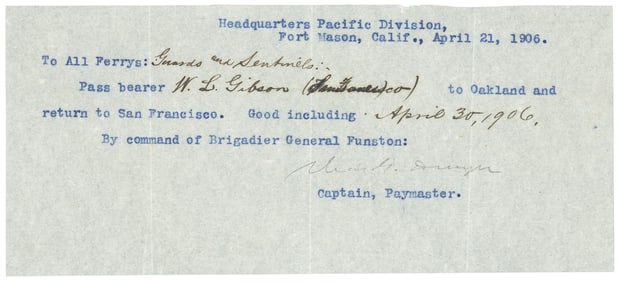 Headquarters Pacific Division,
Fort Mason, Calif., April 21, 1906.
To All Ferrys: Guards and Sentinels:
Pass bearer W. L. Gibson to Oakland and
return to San Francisco. Good including April 30, 1906.
By command of Brigadier General Funston:
Captain, Paymaster.